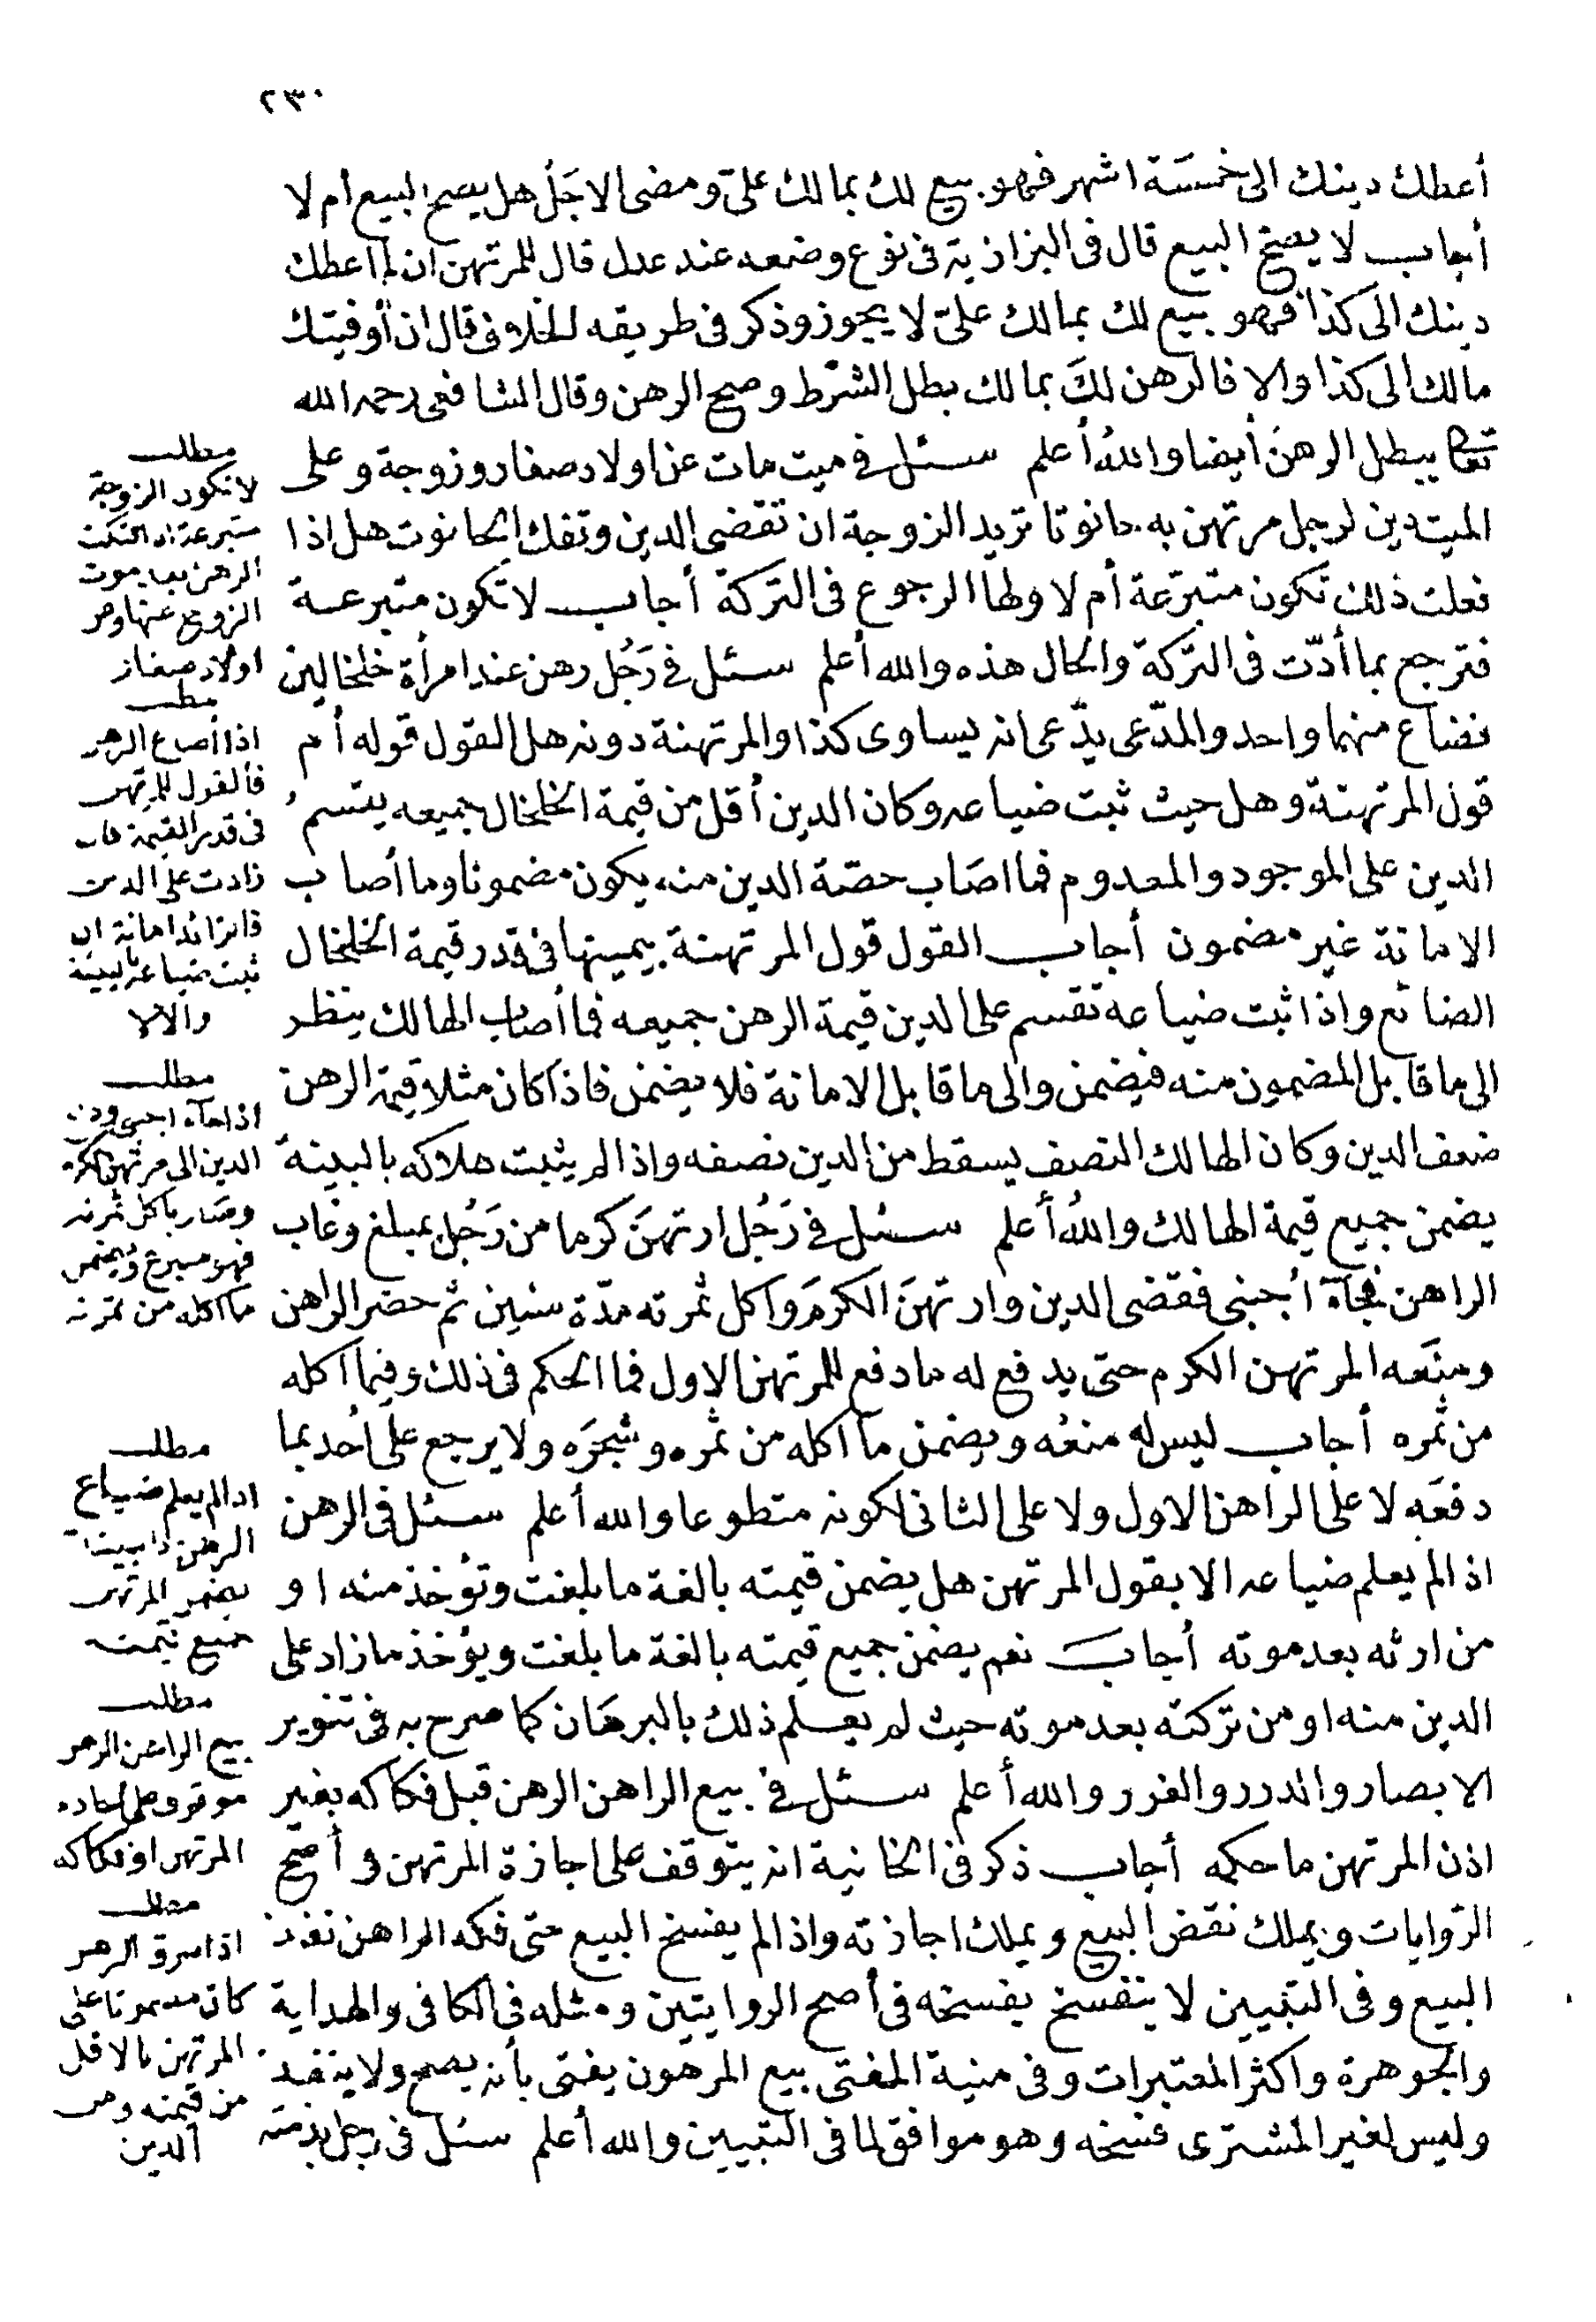 ٢٣٠
أعطك دينك الى خمسة اشهر فهو بيع لك بمالك علىّ ومضى الاجَل هل يصح البيع أم لا
أجاب لا يصح البيع قال فى البزازية فى نوع وضعه عند عدل قال للمرتهن ان لم اعطك
دينك الى كذا فهو بيع لك بمالك علىّ لا يجوز وذكر فى طريقه الخلاف قال ان أوفيتك
مالك الى كذا والا فالرهن لكَ بمالك بطل الشرط وصح الرهن وقال الشافعى رحمه الله
تعالى يبطل الرهن أيضا والله أعلم سئل فى ميت مات عن اولاد صغار وزوجة وعلى
الميت دين لرجل مرتهن به حانوتا تريد الزوجة ان تقضى الدين وتفك الحانوت هل اذا
فعلت ذلك تكون متبرّعة أم لا ولها الرجوع فى التركة أجاب لا تكون متبرعة
فترجع بما أدّت فى التركة والحال هذه والله أعلم سئل فى رَجُل رهن عند امرأة خلخالين
فضاع منهما واحد والمدّعى يدّعى انه يساوى كذا والمرتهنة دونه هل القول قوله أم
قول المرتهنة وهل حيث ثبت ضياعه وكان الدين أقل من قيمة الخلخال جميعه يقسم
الدين على الموجود والمعدوم فما اصَاب حصّة الدين منه يكون مضمونا وما أصاب
الامانة غير مضمون أجاب القول قول المرتهنة بيمينها فى قدر قيمة الخلخال
الضائع واذا ثبت ضياعه تقسم على الدين قيمة الرهن جميعه فما أصاب الهالك ينظر
الى ما قابل المضمون منه فيضمن والى ما قابل الامانة فلا يضمن فاذا كان مثلا قيمة الرهن
ضعف الدين وكان الهالك النصف يسقط من الدين نصفه واذا لم يثبت هلاكه بالبينة
يضمن جميع قيمة الهالك والله أعلم سئل فى رَجُل ارتهنَ كرما من رَجُل بمبلغ وغاب
الراهن فجاءَ أجنبى فقضى الدين وارتهنَ الكرمَ واكل ثمرته مدّة سنين ثم حضر الراهن
ومنَعه المرتهن الكرم حتى يدفع له ما دفع للمرتهن الاول فما الحكم فى ذلك وفيما اكله
من ثمره أجاب ليس له منعُه ويضمن ما اكله من ثمره وشجرَه ولا يرجع على أحد بما
دفعَه لا على الراهن الاول ولا على الثانى لكونه متطوعا والله أعلم سئل فى الرهن
اذا لم يعلم ضياعه الا بقول المرتهن هل يضمن قيمته بالغة ما بلغت وتؤخذ منه او
من ارثه بعد موته أجاب نعم يضمن جميع قيمته بالغة ما بلغت ويؤخذ ما زاد على
الدين منه او من تركته بعد موته حيث لم يعلم ذلك بالبرهَان كما صرح به فى تنوير
الابصار والدرر والغرر والله أعلم سئل فى بيع الراهن الرهن قبل فكاكه بغير
اذن المرتهن ما حكمه أجاب ذكر فى الخانية انه يتوقف على اجازة المرتهن فى أصح
الروايات ويملك نقض البيع ويملك اجازته واذا لم يفسخ البيع حتى فكه الراهن نفذ
البيع وفى التبيين لا ينفسخ بفسخه فى أصح الروايتين ومثله فى الكافى والهداية
والجوهرة واكثر المعتبرات وفى منية المفتى بيع المرهون يفتى بأنه يصح ولا ينفذ
وليس لغير المشترى فسخه وهو موافق لما فى التبيين والله أعلم سئل فى رجل بذمته
مطلب
لا تكون الزوجة
متبرعة اذا افتكت
الرهن بعد موت
الزوج عنها وعن
اولاد صغار
مطلب
اذا أضاع الرهن
فالقول للمرتهن
فى قدر القيمة فان
زادت على الدين
فالزائد امانة ان
ثبت ضياعه ببينة
والا لا
مطلب
اذا جاء اجنبى ودفع
الدين الى مرتهن الكرم
وصار يأكل ثمرته
فهو متبرع ويضمن
ما اكله من ثمرته
مطلب
اذا لم يعلم ضياع
الرهن الا ببينة
يضمن المرتهن
جميع قيمته
مطلب
بيع الراهن الرهن
موقوف على اجازة
المرتهن او فكاكه
مطلب
اذا سرق الرهن
كان مضمونا على
المرتهن بالاقل
من قيمته ومن
الدين